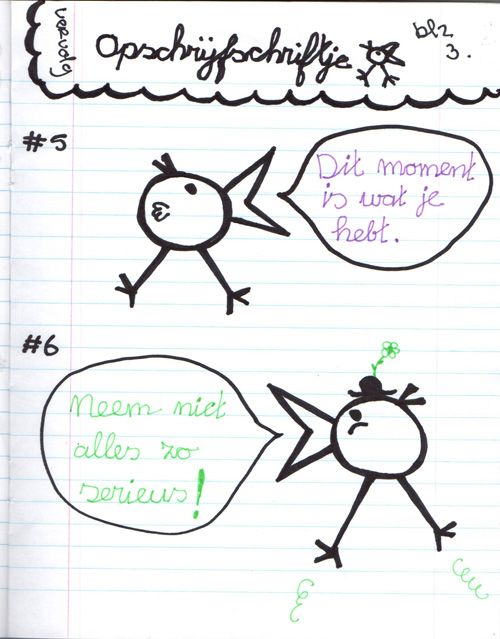 vervolg
Opschrijfschriftje
blz
3.
#5
Dit moment
is wat je
hebt.
#6
Neem niet
alles zo
serieus!